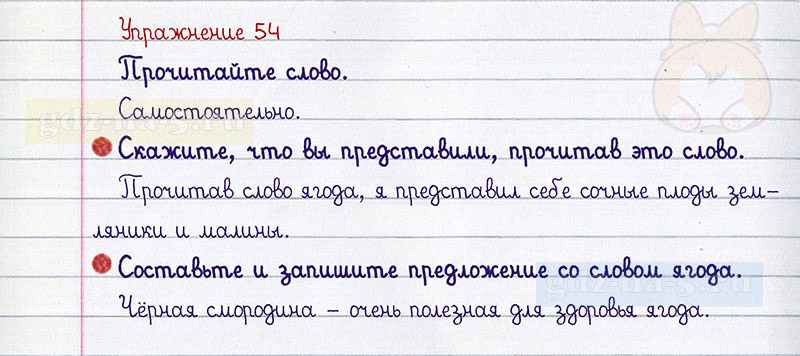 Упражнение 54
Прочитайте слово.
Самостоятельно.
Скажите, что вы представили, прочитав это слово.
Прочитав слово ягода, я представил себе сочные плоды зем-
ляники и малины.
Составьте и запишите предложение со словом ягода.
Чёрная смородина – очень полезная для здоровья ягода.
gdz-na-5.ru
gdz-na-5.ru